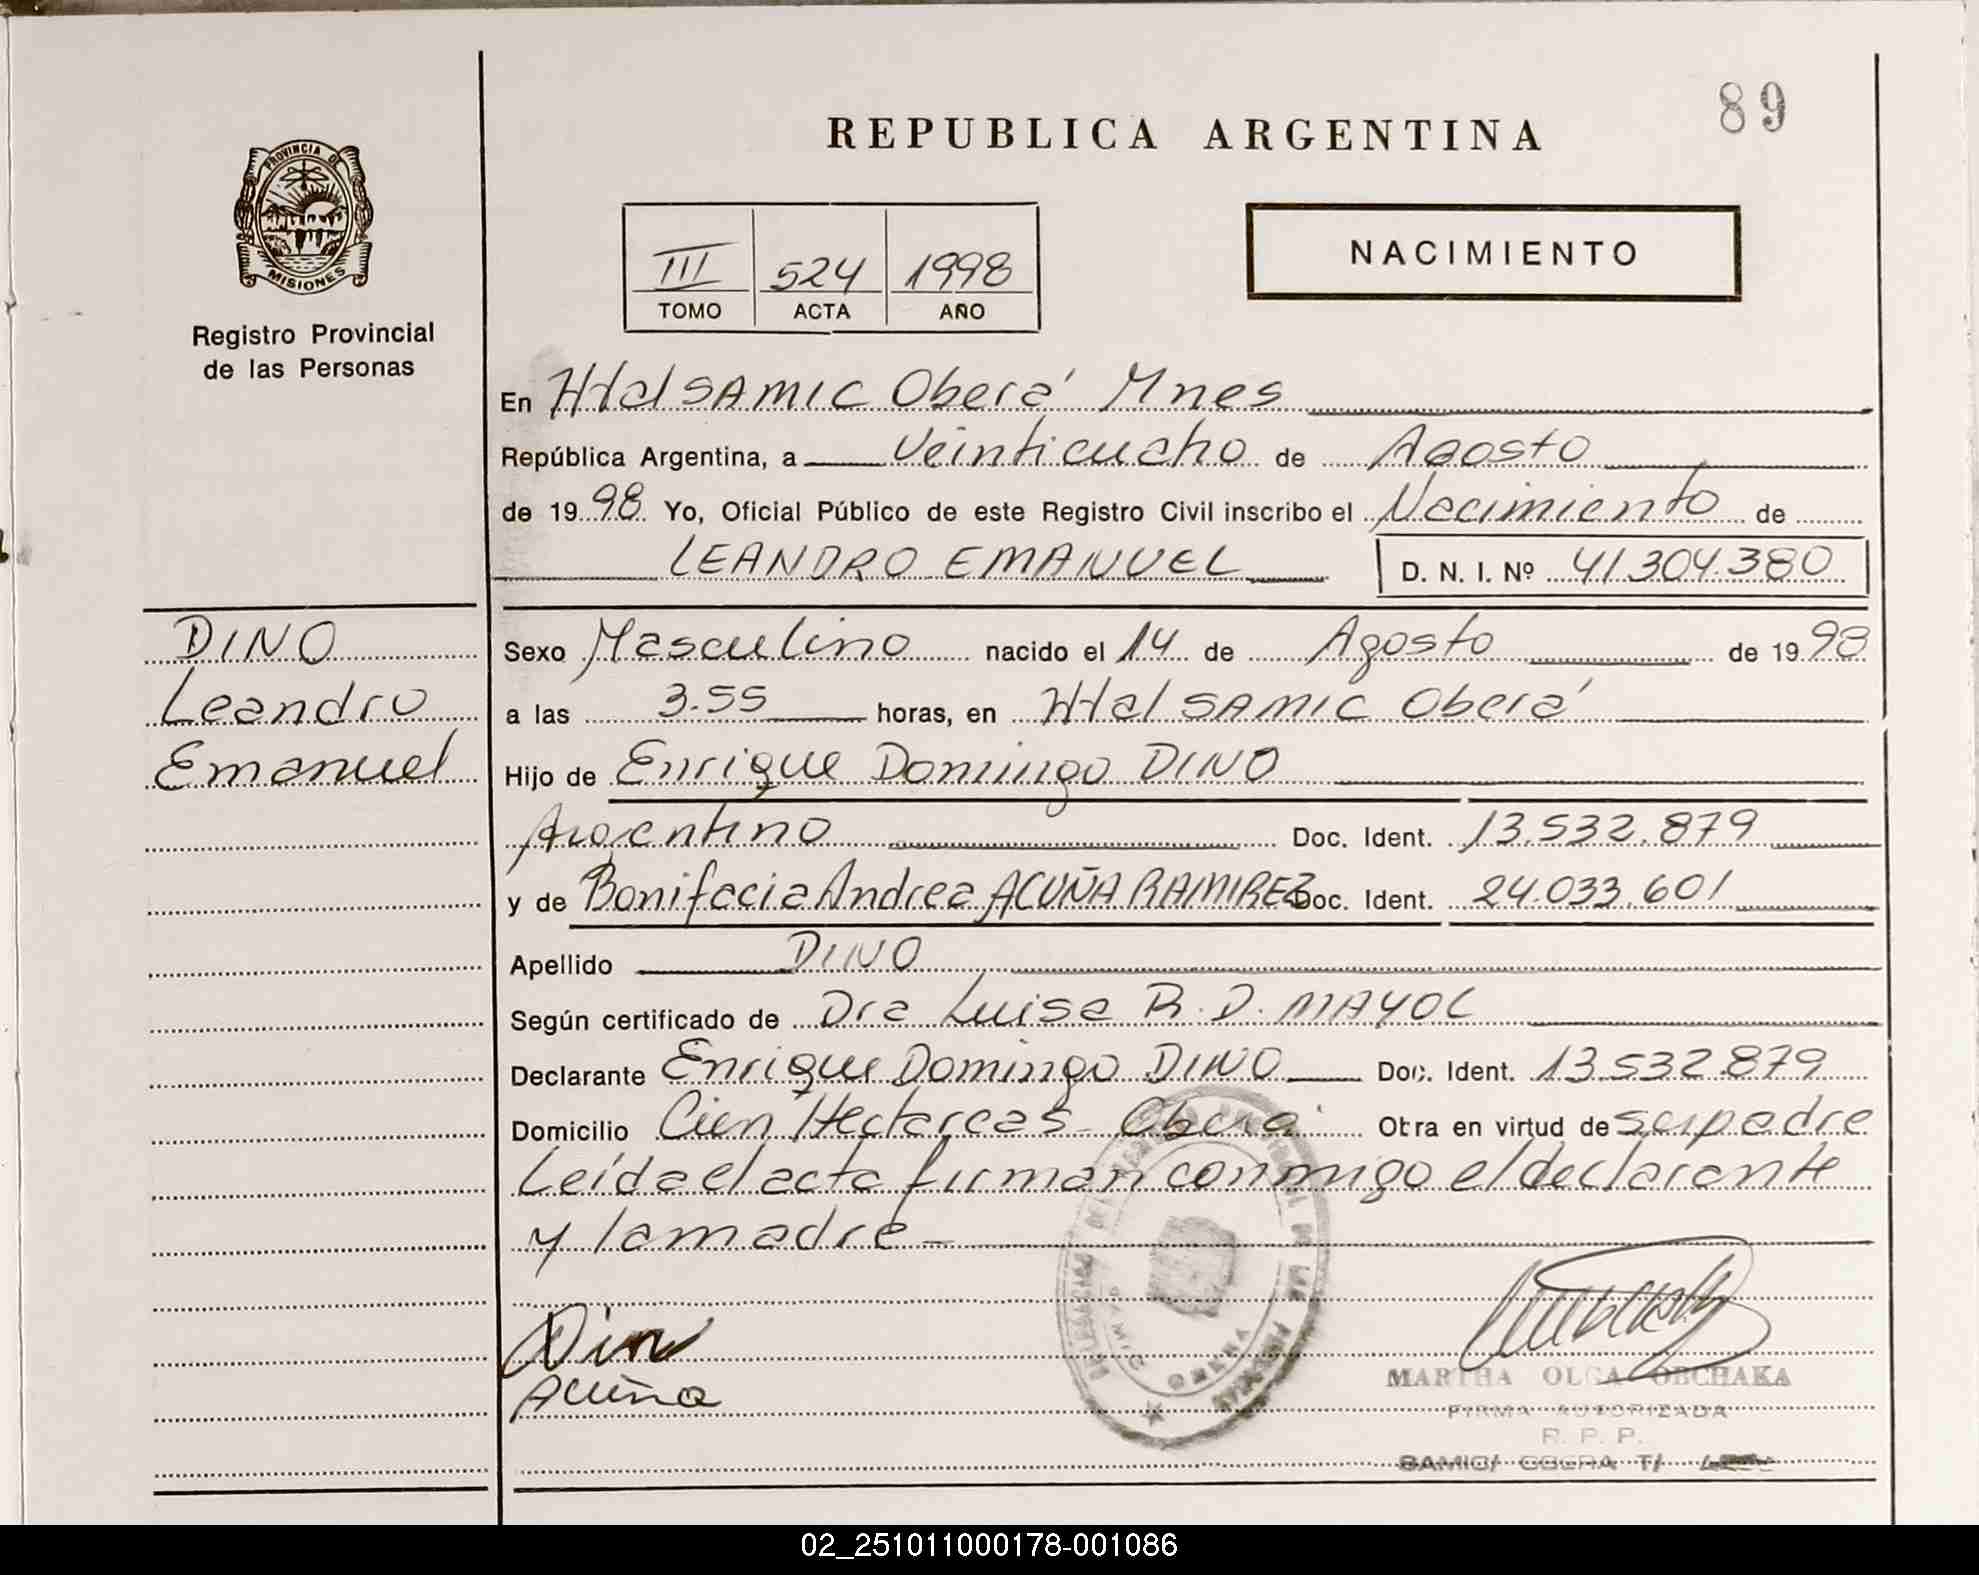 89
REPUBLICA ARGENTINA
PROVINCIA DE
MISIONES
Registro Provincial
de las Personas
III 524 1998
TOMO ACTA AÑO
NACIMIENTO
En Htal SAMIC Oberá Mnes
República Argentina, a Veinticuoho de Agosto
de 1998 Yo, Oficial Público de este Registro Civil inscribo el Nacimiento de
LEANDRO EMANUEL D. N. I. Nº 41.304.380
DINO
Leandro
Emanuel
Sexo Masculino nacido el 14 de Agosto de 1998
a las 3.55 horas, en Htal SAMIC Oberá
Hijo de Enrique Domingo DINO
Argentino Doc. Ident. 13.532.879
y de Bonifacia Andrea ACUÑA RAMIREZ Doc. Ident. 24.033.601
Apellido DINO
Según certificado de Dra Luisa R. D. MAYOL
Declarante Enrique Domingo DINO Doc. Ident. 13.532.879
Domicilio Cien Hectareas - Oberá Obra en virtud de su padre
Leída el acta firman conmigo el declarante
y la madre
Dino
Acuña
OBERA
MARTHA OLGA OBCHAKA
FIRMA AUTORIZADA
R. P. P.
SAMIC/ OBERA T/
02_251011000178-001086